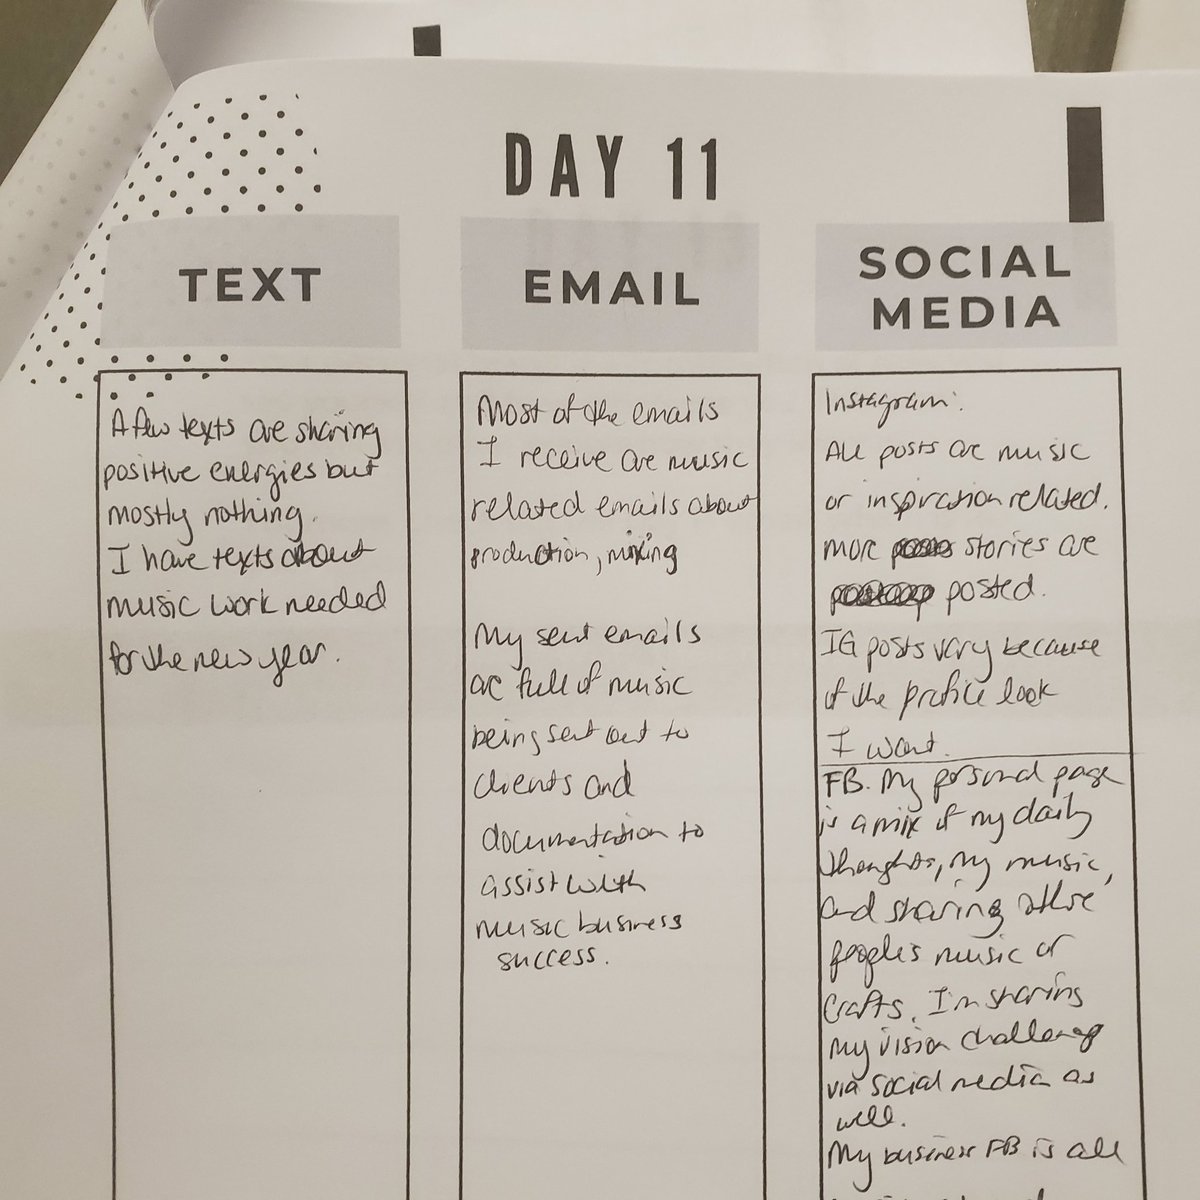 DAY 11
TEXT
A few texts are sharing
positive energies but
mostly nothing.
I have texts about
music work needed
for the new year.
EMAIL
Most of the emails
I receive are music
related emails about
production, mixing
My sent emails
are full of music
being sent out to
clients and
documentation to
assist with
music business
success.
SOCIAL
MEDIA
Instagram:
All posts are music
or inspiration related.
more stories are
posted.
IG posts vary because
of the profile look
I want.
FB. My personal page
is a mix of my daily
thoughts, my music,
and sharing other
people's music or
crafts. I'm sharing
my vision challenge
via social media as
well.
My business FB is all